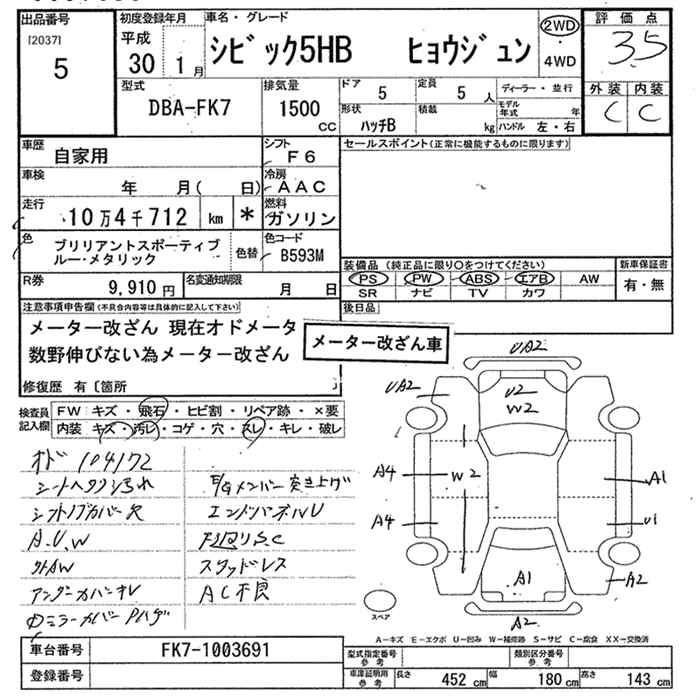 出品番号
[2037]
5
初度登録年月
平成
30 1月
車名・グレード
シビック5HB ヒョウジュン
2WD
4WD
評価点
3.5
外装 内装
C C
型式
DBA-FK7
排気量
1500
CC
ドア
5
定員
5人
形状
ハッチB
積載
kg
ディーラー・並行
モデル年式 年
ハンドル 左・右
車歴
自家用
シフト
F6
車検
年 月( 日)
冷房
AAC
走行
10万4千712 km *
燃料
ガソリン
色
ブリリアントスポーティブ
ルー・メタリック
色替
色コード
B593M
R券
9,910円
名変通知期限
月 日
セールスポイント(正常に機能するものに限ります)
装備品 (純正品に限り○をつけてください)
PS PW ABS エアB AW
SR ナビ TV カワ
新車保証書
有・無
後日品
注意事項申告欄(不具合内容等は具体的に記入して下さい)
メーター改ざん 現在オドメータ
数野伸びない為メーター改ざん
メーター改ざん車
修復歴 有〔箇所 〕
検査員
記入欄
FW キズ・飛石・ヒビ割・リペア跡・×要
内装 キズ・汚レ・コゲ・穴・スレ・キレ・破レ
オド 104172
シートヘタリ汚れ
シフトノブカバー欠
A.U.W
外AW
アンダーカバーオレ
Dミラーカバー Pハゲ
E/Gメンバー突き上げ
エンドパネルU
スタッドレス
AC不良
UA2
UA2
U2
W2
A4
W2
A1
A4
U1
A1
A2
A2
スペア
A－キズ E－エクボ U－凹み W－補修跡 S－サビ C－腐食 XX－交換済
車台番号
FK7-1003691
登録番号
型式指定番号
参考
類別区分番号
参考
車庫証明用
参考
長さ 452 cm 幅 180 cm 高さ 143 cm